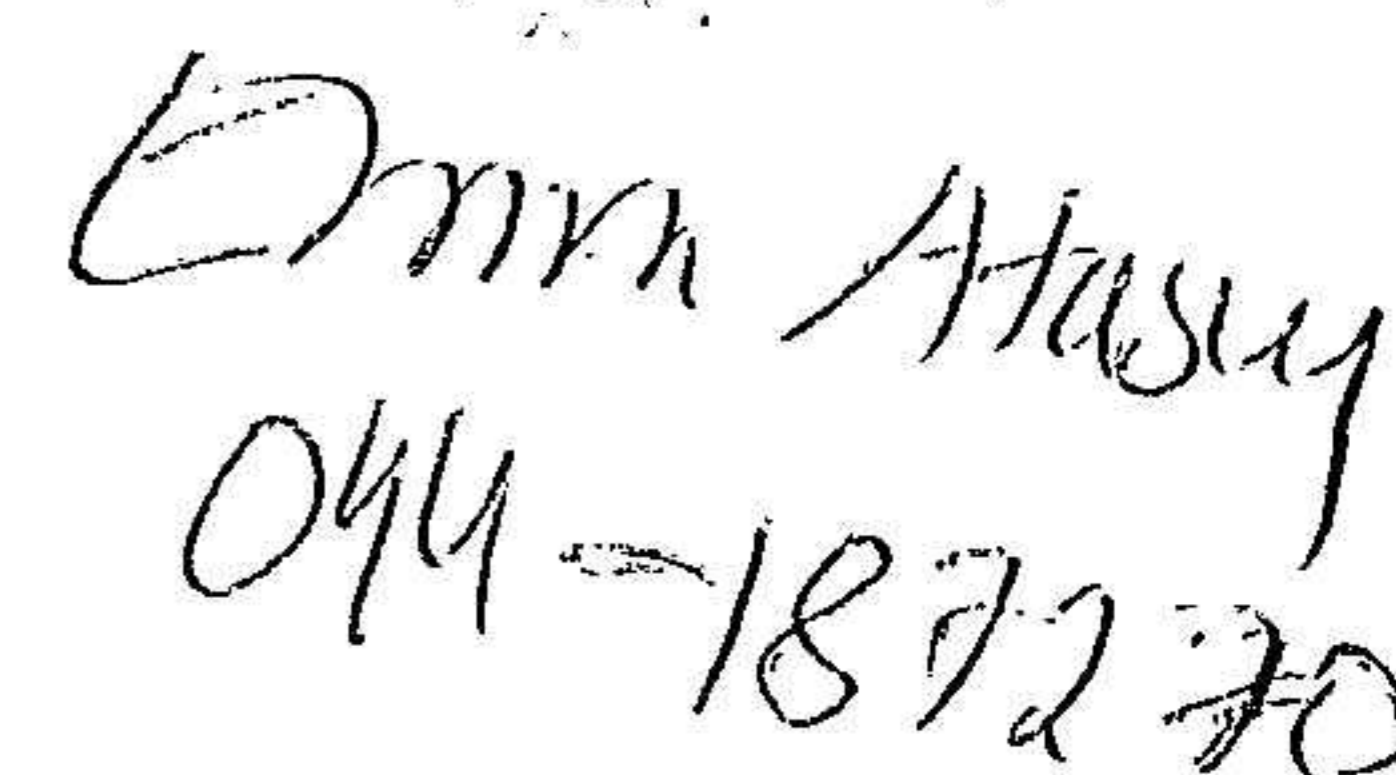 Omrn Atasuy
044-187270